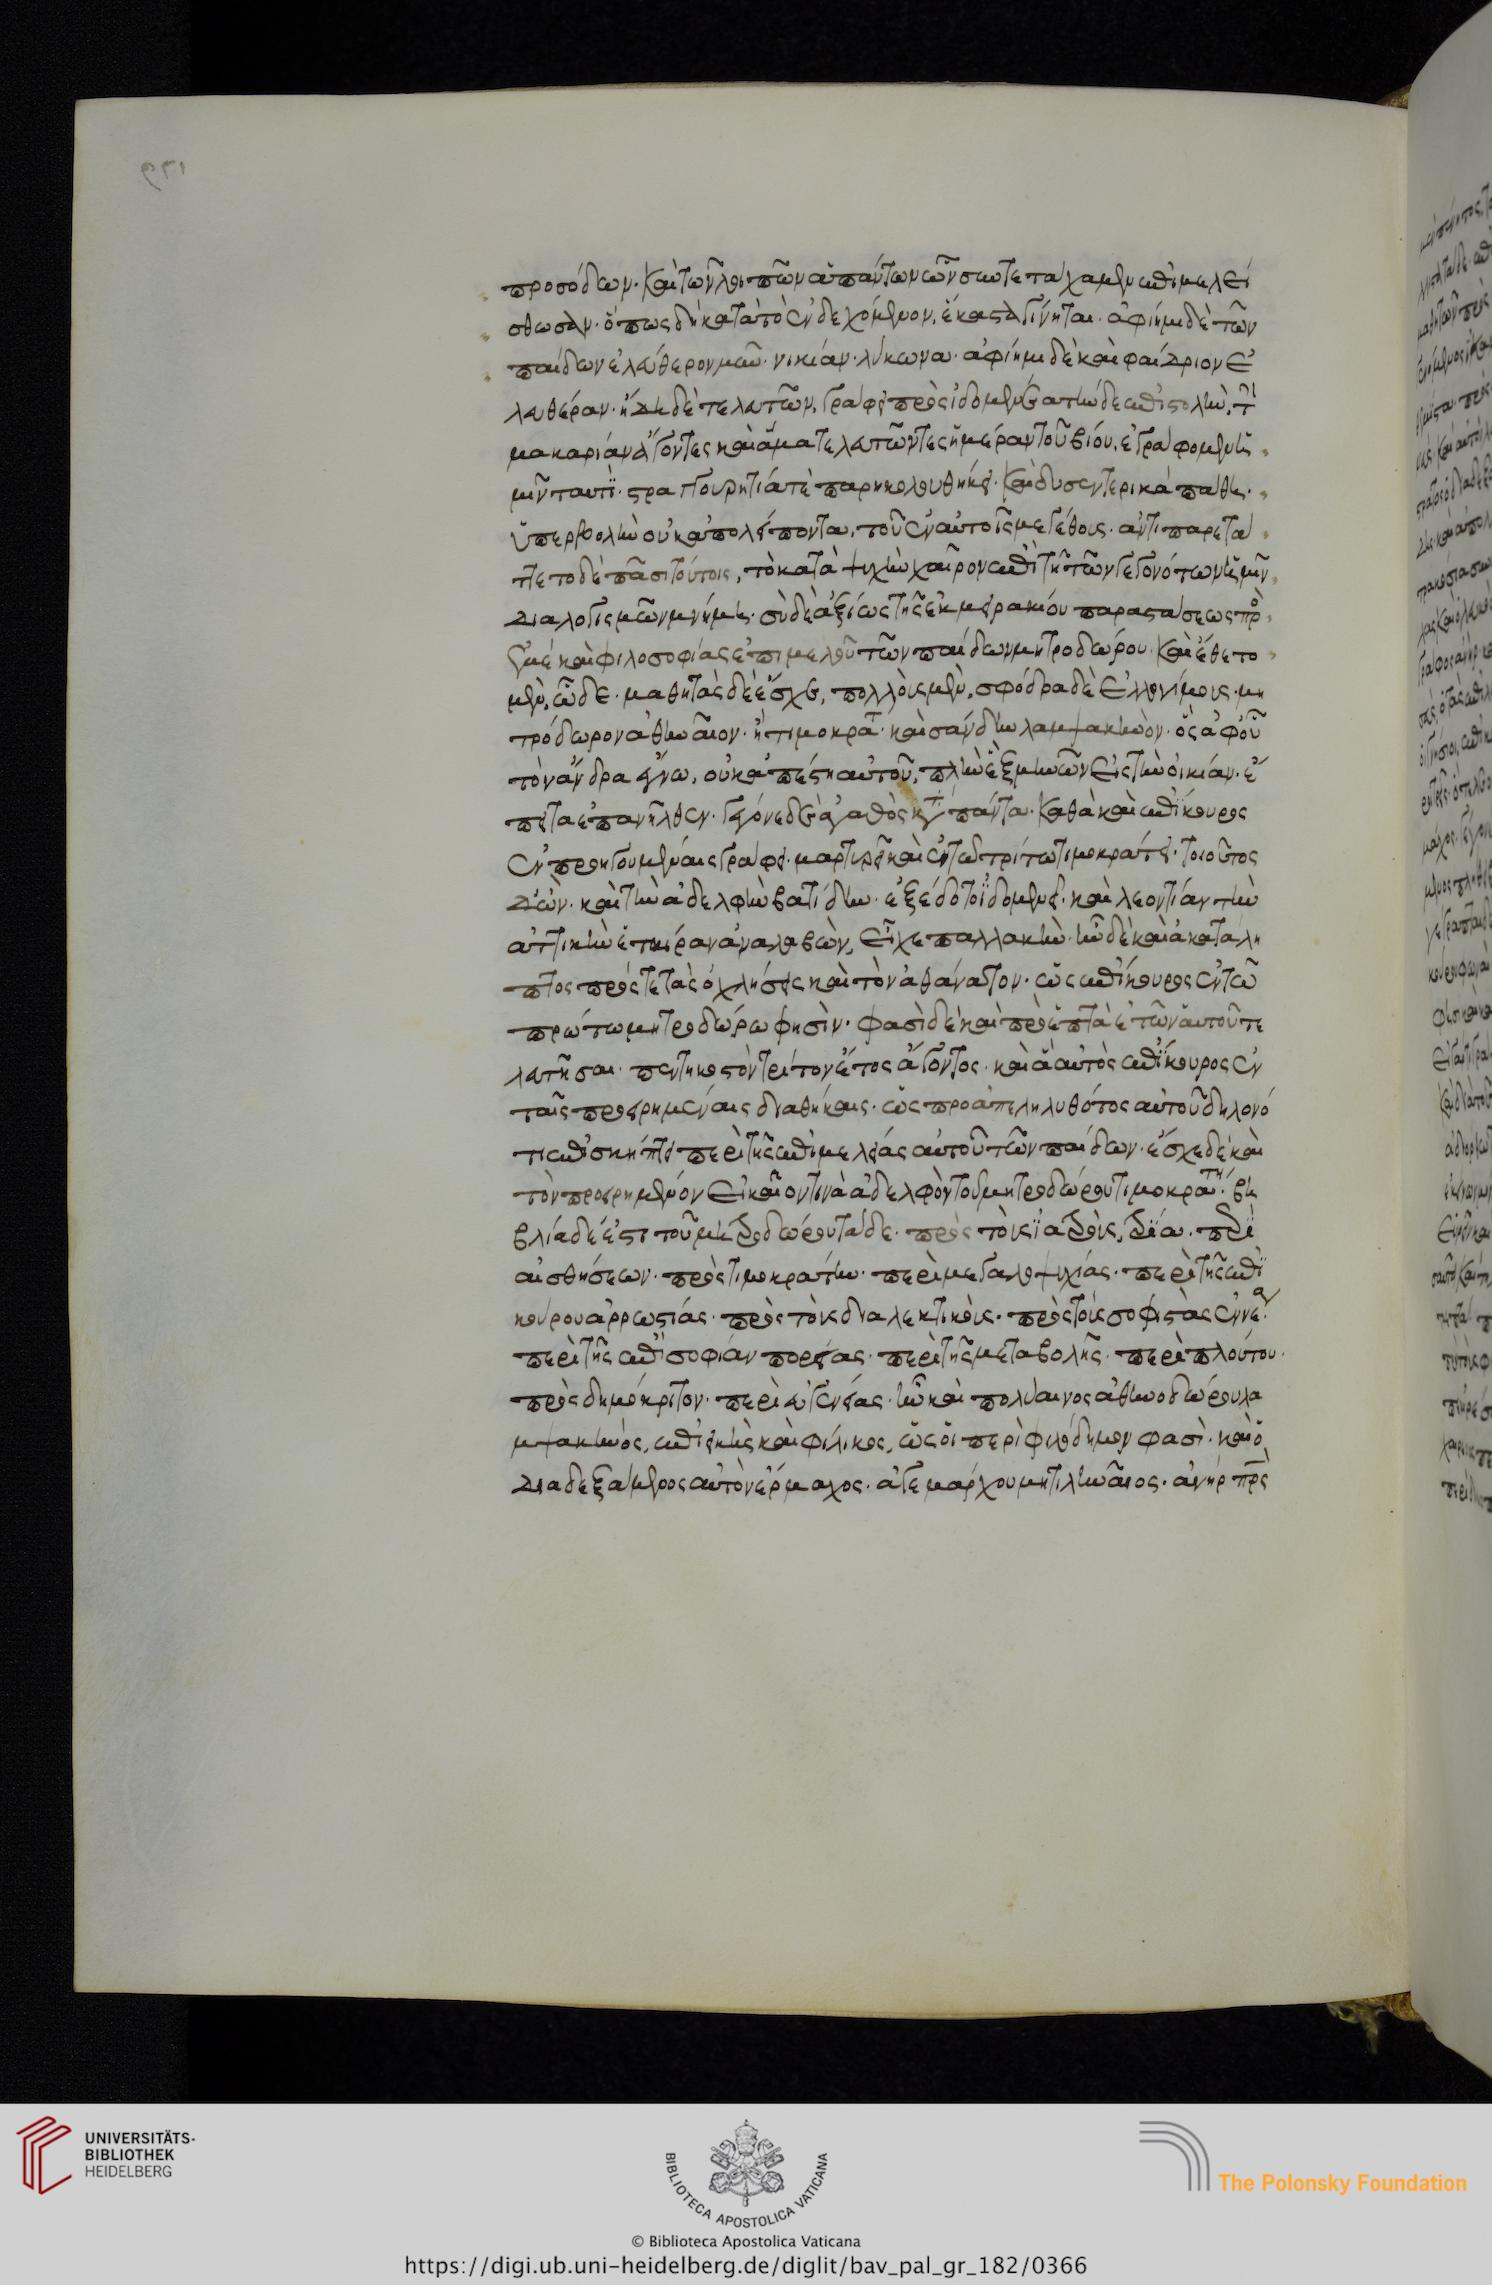 προσόδων. καὶ τῶν λοιπῶν ἁπάντων ὧν συντετάχαμεν ἐπιμελεί
σθωσαν. ὅπως δὴ κατὰ τὸ ἐνδεχόμενον, ἕκαστα γίνηται. ἀφίημι δὲ τῶν
παίδων ἐλεύθερον μῦν. νικίαν. λύκωνα. ἀφίημι δὲ καὶ φαίδριον ἐ
λευθέραν. ἤδη δὲ τελευτῶν, γράφει πρὸς ἰδομενέα τὴνδε ἐπιστολὴν, τὴ
μακαρίαν ἄγοντες καὶ ἅμα τελευτῶντες ἡμέραν τοῦ βίου, ἐγράφομεν ὑ
μῖν ταυτί. στραγγουρητιά τὲ παρηκολουθήκει. καὶ δυσεντερικὰ πάθη.
ὑπερβολὴν οὐκ ἀπολείποντα, τοῦ ἐν αὐτοῖς μεγέθους. ἀντιπαρετά
ττετο δὲ πᾶσι τούτοις, τὸ κατὰ ψυχὴν χαῖρον ἐπὶ τῇ τῶν γεγονότων ἡμῖν
διαλογισμῶν μνήμῃ. σὺ δὲ ἀξίως τῆς ἐκ μειρακίου παραστάσεως πρὸ
ς ἐμὲ καὶ φιλοσοφίας ἐπιμελοῦ τῶν παίδων μητροδώρου. καὶ ἔθετο
μὲν, ὧδε. μαθητὰς δὲ ἔσχε, πολλοὺς μὲν, σφόδρα δὲ ἐλλογίμους. μη
τρόδωρον ἀθηναῖον. ἢ τιμοκρατ. καὶ σάνδην λαμψακηνὸν. ὃς ἀφ' οὗ
τὸν ἄνδρα ἔγνω, οὐκ ἀπέστη αὐτοῦ, πλὴν ἓξ μηνῶν εἰς τὴν οἰκίαν. ἔ
πειτα ἐπανῆλθεν. γέγονε δὲ ἀγαθὸς κατὰ πάντα. καθὰ καὶ ἐπίκουρος
ἐν προηγουμέναις γραφαῖς. μαρτυρεῖ καὶ ἐν τῷ τρίτω τιμοκράτει. τοιοῦτος
δ' ὢν. καὶ τὴν ἀδελφὴν βατίδην. ἐξέδοτο ἰδομενεῖ. καὶ λεοντίαν τὴν
ἀττικὴν ἑταίραν ἀναλαβὼν, εἶχε παλλακὴν. ἦν δὲ καὶ ἀκατάλη
πτος πρός τε τὰς ὀχλήσεις καὶ τὸν θάνατον. ὡς ἐπίκουρος ἐν τῷ
πρώτω μητροδώρω φησὶν. φασὶ δὲ καὶ πρὸ ἑπτὰ ἐτῶν αὐτοῦ τε
λευτῆσαι. πεντηκοστὸν τρίτον ἔτος ἄγοντος. καὶ ἃ αὐτὸς ἐπίκουρος ἐν
ταῖς προειρημέναις διαθήκαις. ὡς προαπεληλυθότος αὐτοῦ δηλονό
τι ἐπισκήπτει περὶ τῆς ἐπιμελείας αὐτοῦ τῶν παίδων. ἔσχε δὲ καὶ
τὸν προειρημένον εἰκαῖον τινὰ ἀδελφὸν τοῦ μητροδώρου τιμοκράτη. βι
βλία δέ ἐστι τοῦ μητροδώρου τάδε. πρὸς τοὺς ἰατροὺς, τρία. περὶ
αἰσθήσεων. πρὸς τιμοκράτην. περὶ μεγαλοψυχίας. περὶ τῆς ἐπι
κούρου ἀρρωστίας. πρὸς τοὺς διαλεκτικοὺς. πρὸς τοὺς σοφιστὰς ἐννέα.
περὶ τῆς ἐπὶ σοφίαν πορείας. περὶ τῆς μεταβολῆς. περὶ πλούτου.
πρὸς δημόκριτον. περὶ εὐγενείας. ἦν καὶ πολύαινος ἀθηνοδώρου λα
μψακηνός, ἐπιεικὴς καὶ φιλικος, ὡς οἱ περὶ φιλόδημον φασὶ. καὶ ὁ
διαδεξάμενος αὐτὸν ἕρμαχος. ἀγεμάρχου μητιληναῖος. ἀνὴρ πρς
UNIVERSITÄTS-
BIBLIOTHEK
HEIDELBERG
BIBLIOTECA APOSTOLICA VATICANA
The Polonsky Foundation
© Biblioteca Apostolica Vaticana
https://digi.ub.uni-heidelberg.de/diglit/bav_pal_gr_182/0366